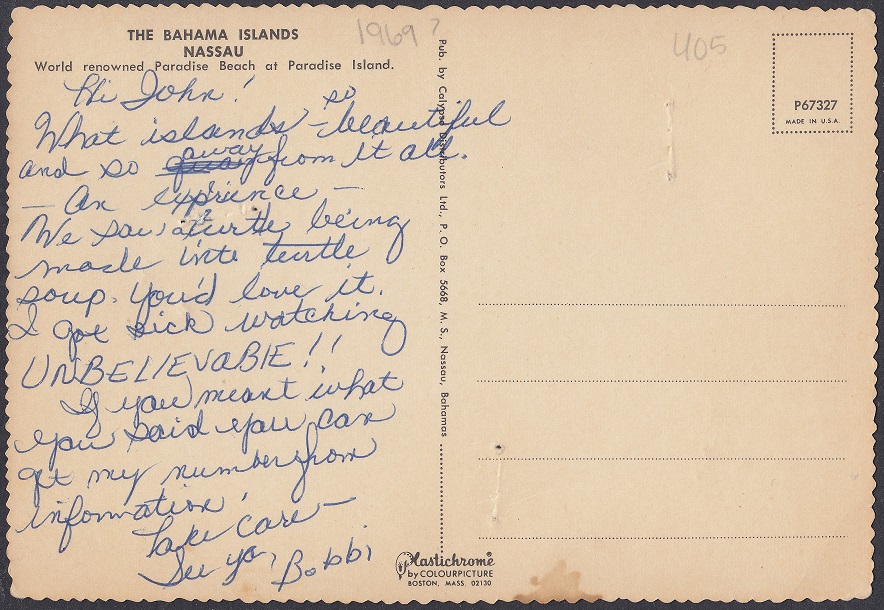 THE BAHAMA ISLANDS
NASSAU
World renowned Paradise Beach at Paradise Island.
1969?
405
P67327
MADE IN U.S.A.
Hi John!
What islands - so beautiful
and so away from it all.
- An exprience -
We saw a turtle being
made into turtle
soup. You'd love it.
I got sick watching
UNBELIEVABlE!!
If you meant what
you said you can
get my number from
information!
Take care -
See ya,
Bobbi
Pub. by Calypso Distributors Ltd., P. O. Box 5668, M. S., Nassau, Bahamas
Plastichrome®
by COLOURPICTURE
BOSTON, MASS. 02130